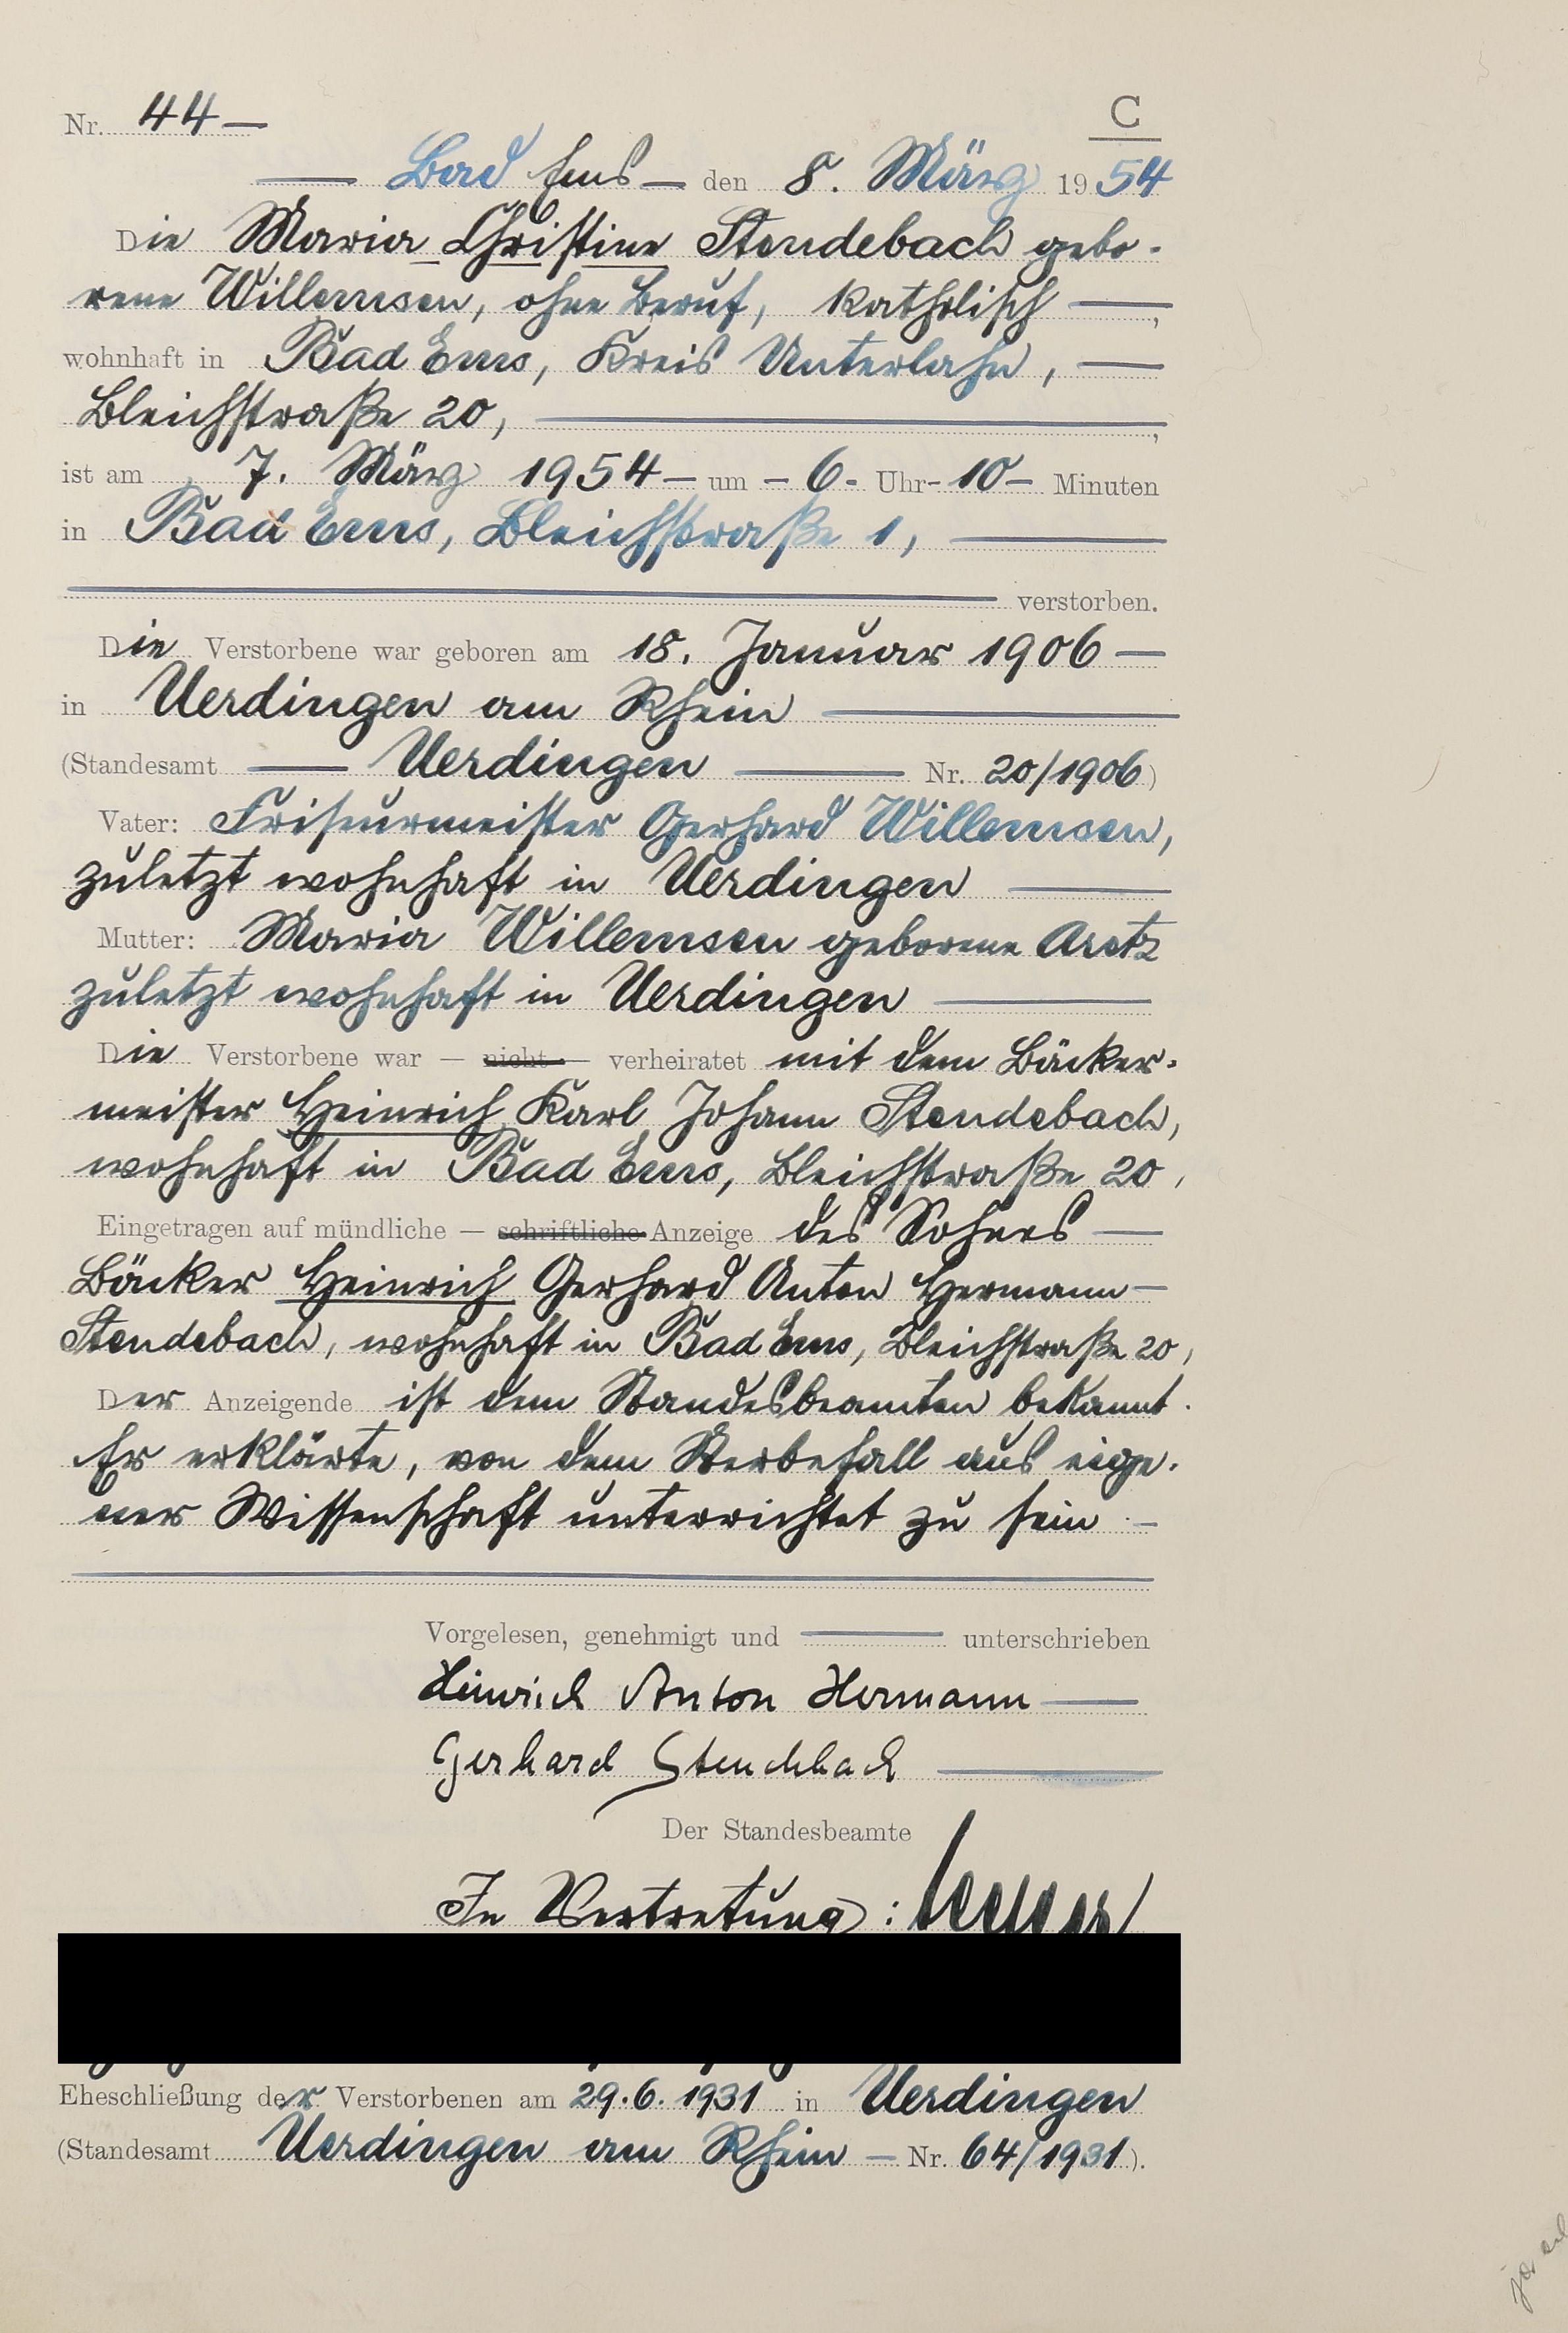 Nr. 44 —
C
— Bad Ems — den 8. März 1954
Die Maria Christine Stendebach gebo-
rene Willemsen, ohne Beruf, katholisch —,
wohnhaft in Bad Ems, Kreis Unterlahn, —
Bleichstraße 20, —,
ist am 7. März 1954 — um — 6 - Uhr - 10 — Minuten
in Bad Ems, Bleichstraße 1, —
— verstorben.
Die Verstorbene war geboren am 18. Januar 1906 —
in Uerdingen am Rhein —
(Standesamt — Uerdingen — Nr. 20/1906)
Vater: Friseurmeister Gerhard Willemsen,
zuletzt wohnhaft in Uerdingen —
Mutter: Maria Willemsen geborene Aretz
zuletzt wohnhaft in Uerdingen —
Die Verstorbene war — nicht — verheiratet mit dem Bäcker-
meister Heinrich Karl Johann Stendebach,
wohnhaft in Bad Ems, Bleichstraße 20,
Eingetragen auf mündliche — schriftliche Anzeige des Sohnes —
Bäcker Heinrich Gerhard Anton Hermann —
Stendebach, wohnhaft in Bad Ems, Bleichstraße 20,
Der Anzeigende ist dem Standesbeamten bekannt.
Er erklärte, von dem Sterbefall aus eige-
ner Wissenschaft unterrichtet zu sein —
Vorgelesen, genehmigt und — unterschrieben
Heinrich Anton Hermann —
Gerhard Stendebach —
Der Standesbeamte
In Vertretung:
Eheschließung der Verstorbenen am 29.6.1931 in Uerdingen
(Standesamt Uerdingen am Rhein — Nr. 64/1931).